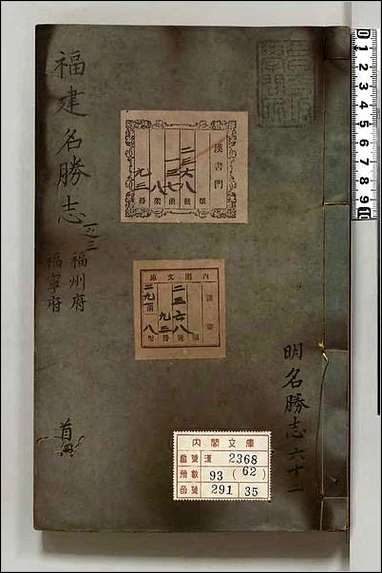 福建名勝志
之三
福州府
福寧府
首
漢書門
二三六八
九三
八
内閣文庫
漢書
二三六八
九三
明名勝志六十二
内閣文庫
番號 漢 2368
冊數 93 (62)
函號 291 35
0 1 2 3 4 5 6 7 8 9 10